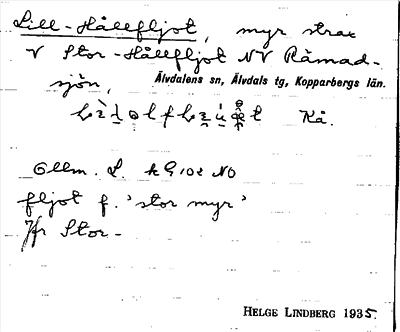 Lill-Hållfljot, myr strax
V Stor-Hållfljot NV Råmad-
sjön,
Älvdalens sn, Älvdals tg, Kopparbergs län.
Kå.
Ollm. L. k 9:102 NO
fljot f. 'stor myr'
Jfr Stor-
HELGE LINDBERG 1935.